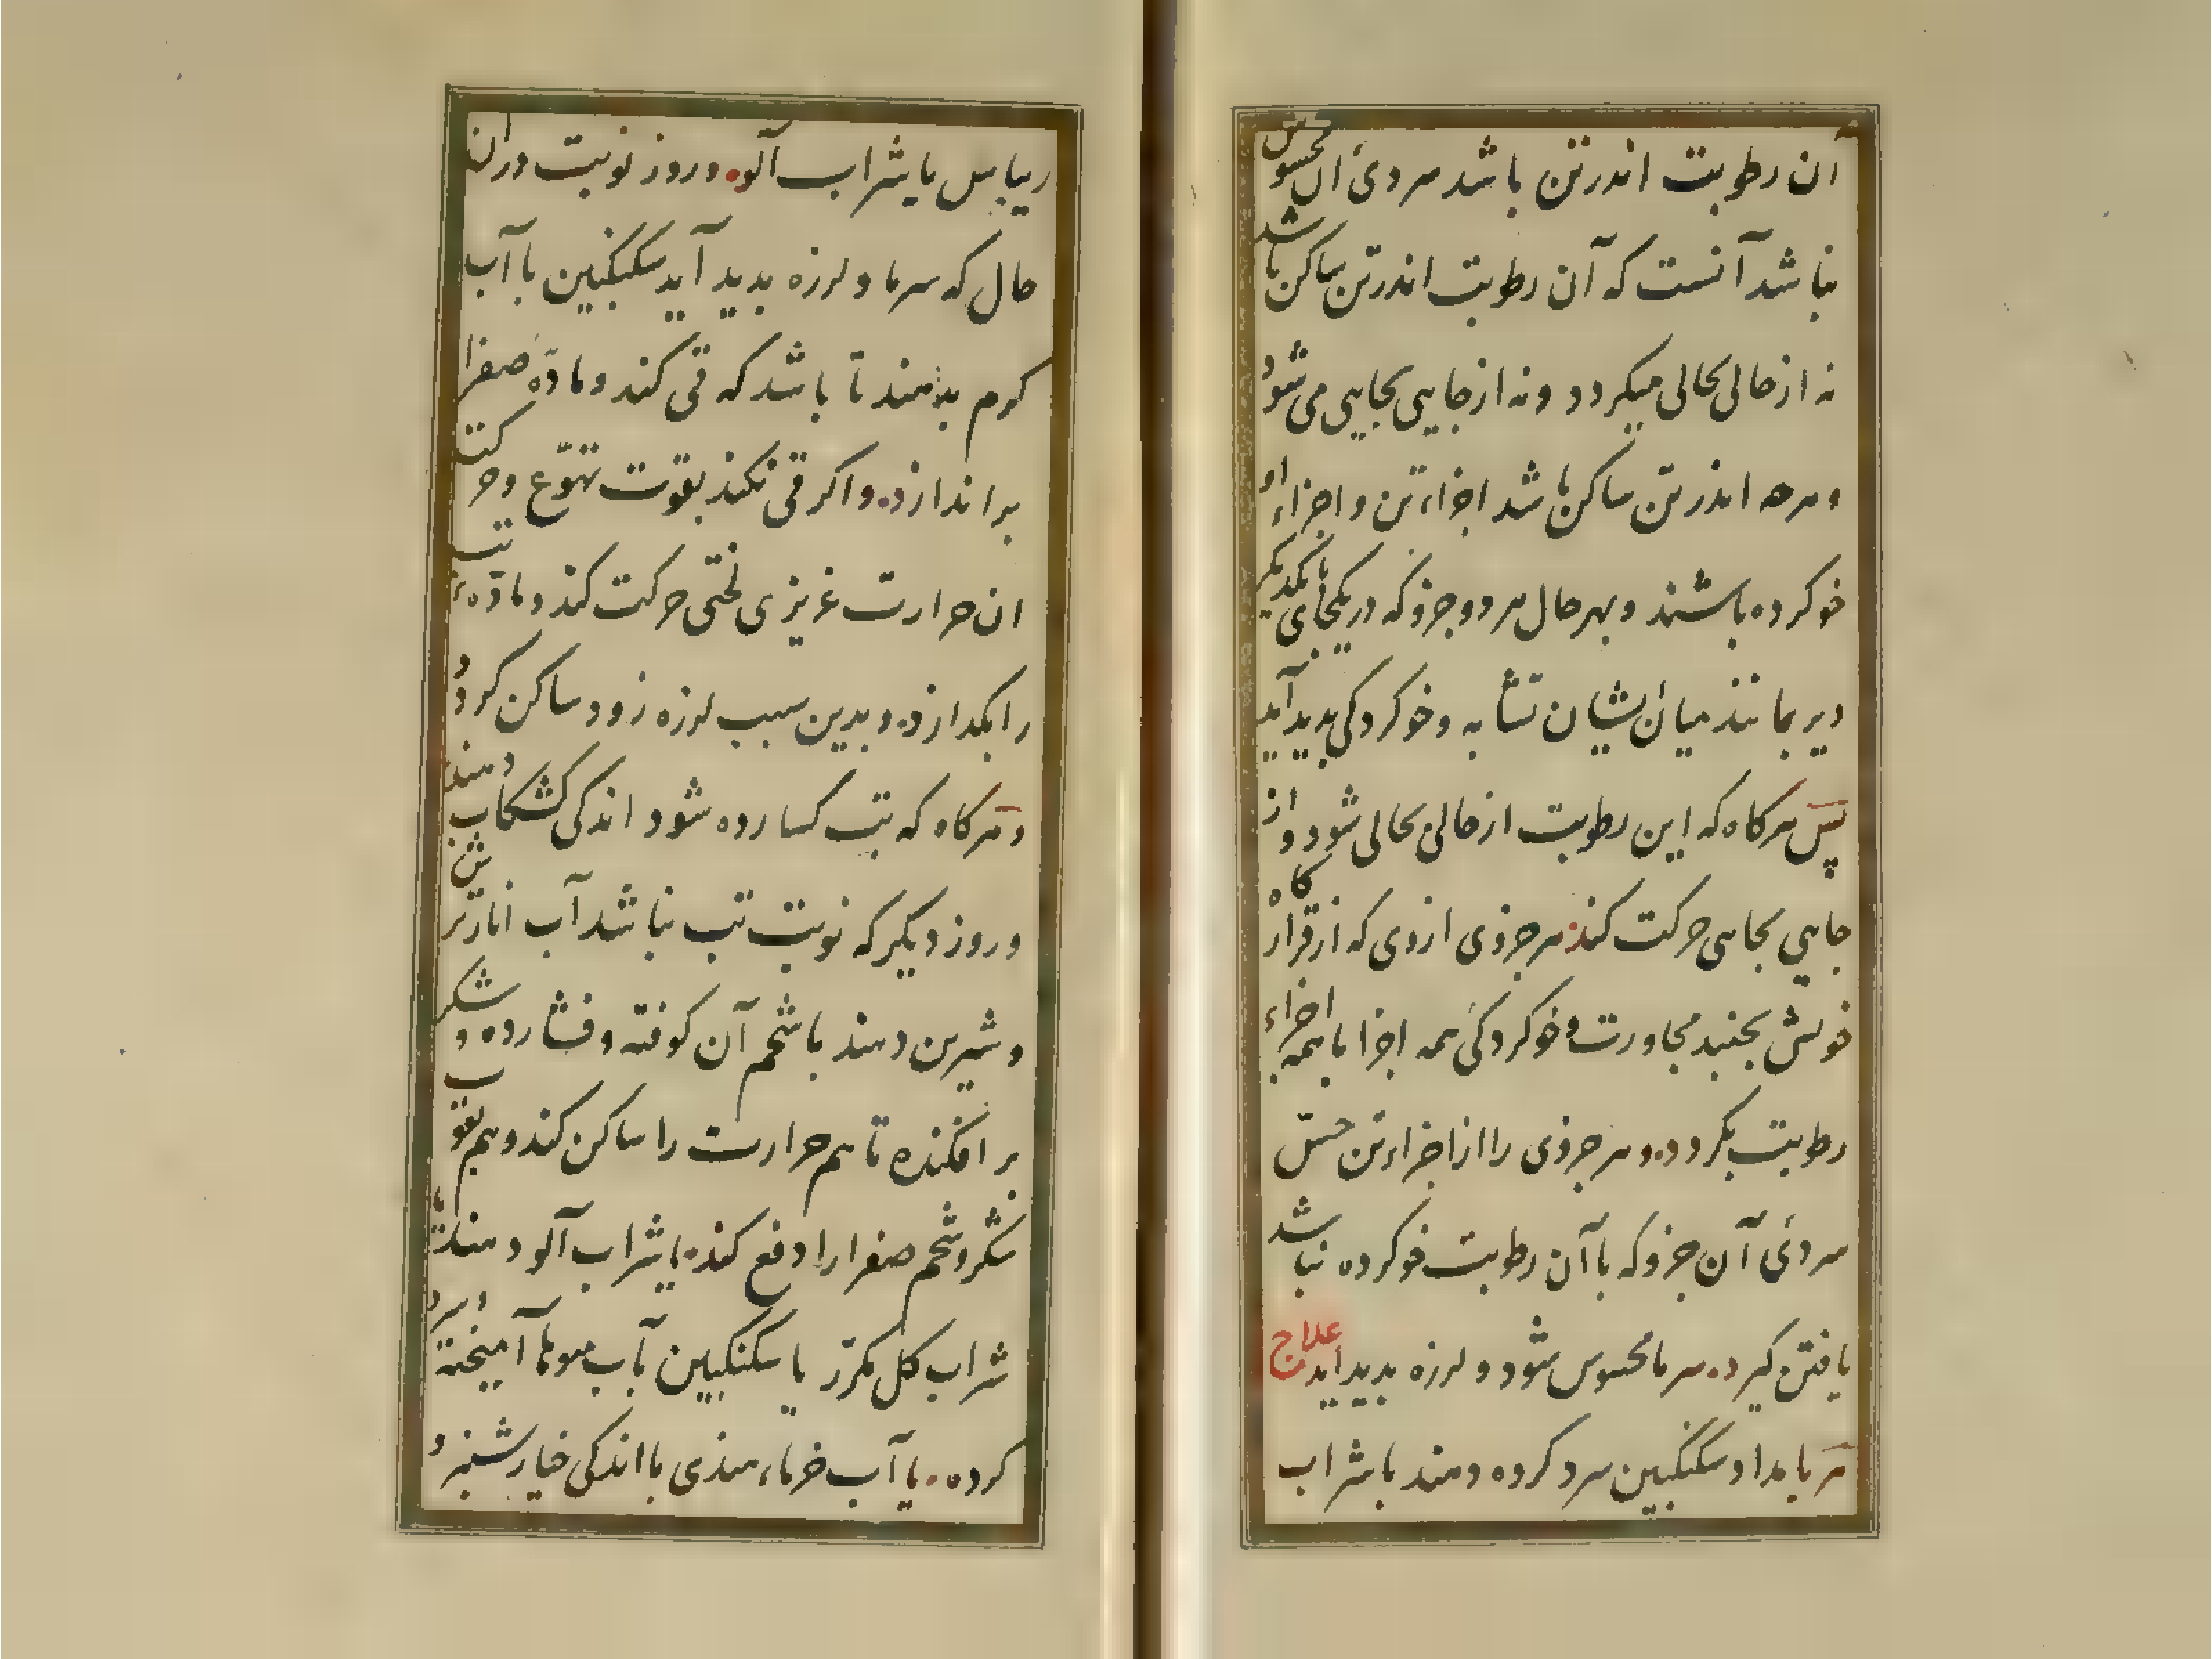 آن رطوبت اندرتن باشد سردئ ان محسوس
نباشد آنست که آن رطوبت اندرتن ساکن باشد
نه ازحالی بحالی میکردد ونه ازجایی بجایی می شود
وهرجه اندرتن ساکن باشد اجزاء تن واجزاء او
خوکرده باشند وبهرحال هردوجزوکه دریکجای بایکدیکر
دیر بمانند میان ایشان تشابه وخوکردکی بدید آید
پس هرکاه که این رطوبت ازحالی بحالی شود واز
جایی بجایی حرکت کند هرجزوی ازوی که ازقرارکاه
خویش بجنبد مجاورت وخوکردکئ همه اجزا باهمه اجزاء
رطوبت بکردد وهرجزوی را ازاجزاء تن حسّ
سردئ آن جزوکه باآن رطوبت خوکرده نباشد
یافتن کیرد سرما محسوس شود ولرزه بدید اید علاج
هربامداد سکنکبین سرد کرده دهند باشراب
ریباس یاشراب آلو وروز نوبت دران
حال که سرما ولرزه بدید آید سکنکبین باآب
کرم بدهند تا باشد که قی کند ومادّه صفرا
براندازد واکرقی نکند بقوت تهوّع وحرکت
ان حرارت غریزی لختی حرکت کند ومادّهء تب
رابکدازد وبدین سبب لرزه زود ساکن کردد
وهرکاه که تب کسارده شود اندکی کشکاب دهند
وروز دیکر که نوبت تب نباشد آب انارترش
وشیرین دهند باشحم آن کوفته وفشارده وشکر
برافکنده تا هم حرارت را ساکن کند وهم بقوّب
شکروشحم صفرا را دفع کند یاشراب آلو دهند یا
شراب کل مکرّر یا سکنکبین بآب میوها آمیخته وسرد
کرده یا آب خرماء هندی بااندکی خیارشنبر و